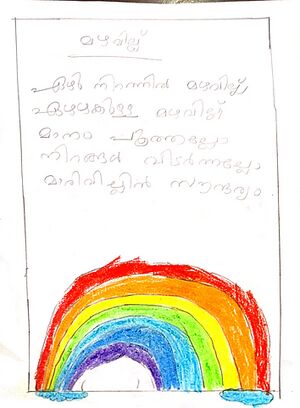 മഴവില്ല്
ഏഴു നിറത്തിൽ മഴവില്ല്
ഏഴഴകുള്ള മഴവില്ല്
മാനം പൂത്തല്ലോ
നിറങ്ങൾ വിടർന്നല്ലോ
മാരിവില്ലിൻ സൗന്ദര്യം